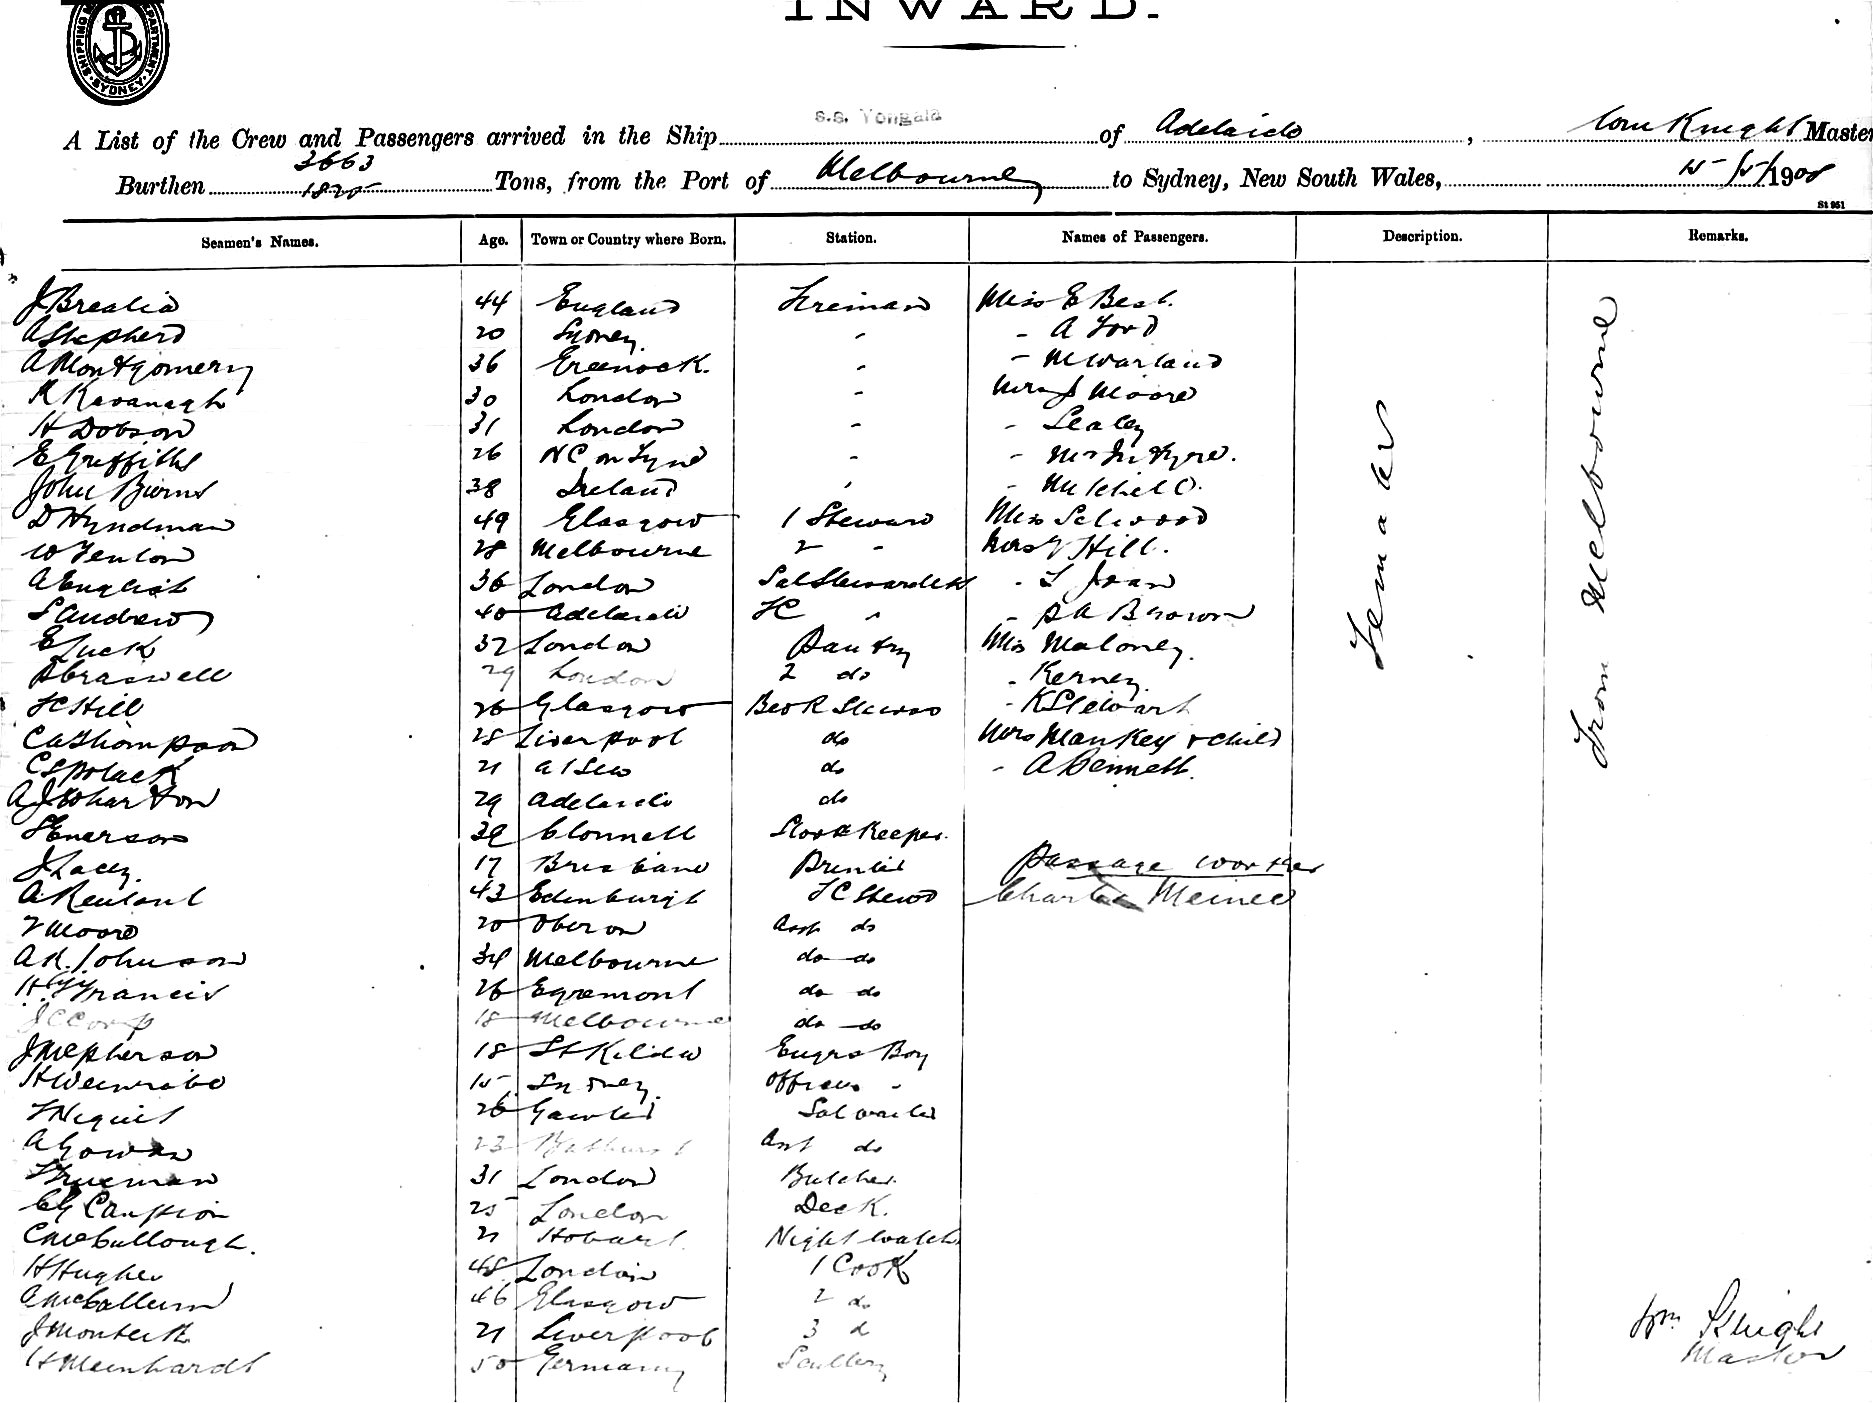 INWARD.
SHIPPING DEPARTMENT SYDNEY
A List of the Crew and Passengers arrived in the Ship s.s. Yongala of Adelaide, Wm Knight Master
Burthen 3663 1825 Tons, from the Port of Melbourne to Sydney, New South Wales, 15/5/1908
St 951
Seamen's Names. Age. Town or Country where Born. Station. Names of Passengers. Description. Remarks.
J Brealia 44 England Fireman Miss E Best.
A Shepherd 20 Sydney. " - A Ford
A Montgomery 36 Greenock. " - M Warland
R Kavanagh 30 London - Mrs J Moore
H Dobson 31 London - - Sealey
E Griffiths 26 NC on Tyne - - McIntyre.
John Burns 38 Ireland " - Mitchell
D Hyndman 49 Glasgow 1 Steward Miss Selwood
W Fenton 28 Melbourne 2 - Mrs Hill.
A English 36 London Sal Stewardess -
S Andrew 40 Adelaide FC " - Brown
E Luck 32 London Pantry Miss Maloney.
Braswell 29 London 2 do - Kerney
FC Hill 26 Glasgow Bed R Steward - K Stewart
CA Thompson 28 Liverpool do Mrs Mankey & child
CS Polack 21 at Sea do - A Bennett.
A J Wharton 29 Adelaide do
Enerson 39 Clonmell Storekeeper.
J Lacey. 17 Brisbane Passage worker
A Rentoul 43 Edinburgh FC Stewd Charlie Meined
Moore 20 Oberon Asst do
A R Johnson 34 Melbourne do do
Francis 26 Egremont do do
J C Corp 18 Melbourne do do
J McPherson 18 St Kilda Engrs Boy
H 15 Sydney. Officers -
26 Gawler Sal waiter
A Gowan 23 Bathurst Asst do
Trueman 31 London Butcher.
CG Campion 25 London Deck.
C McCullough. 21 Hobart Night watch
H Hughes 48 London 1 Cook
A McCallum 46 Glasgow 2 do
J Monteith 21 Liverpool 3 d
H Meinhardt 50 Germany Scullery
From Melbourne
Wm Knight
Master